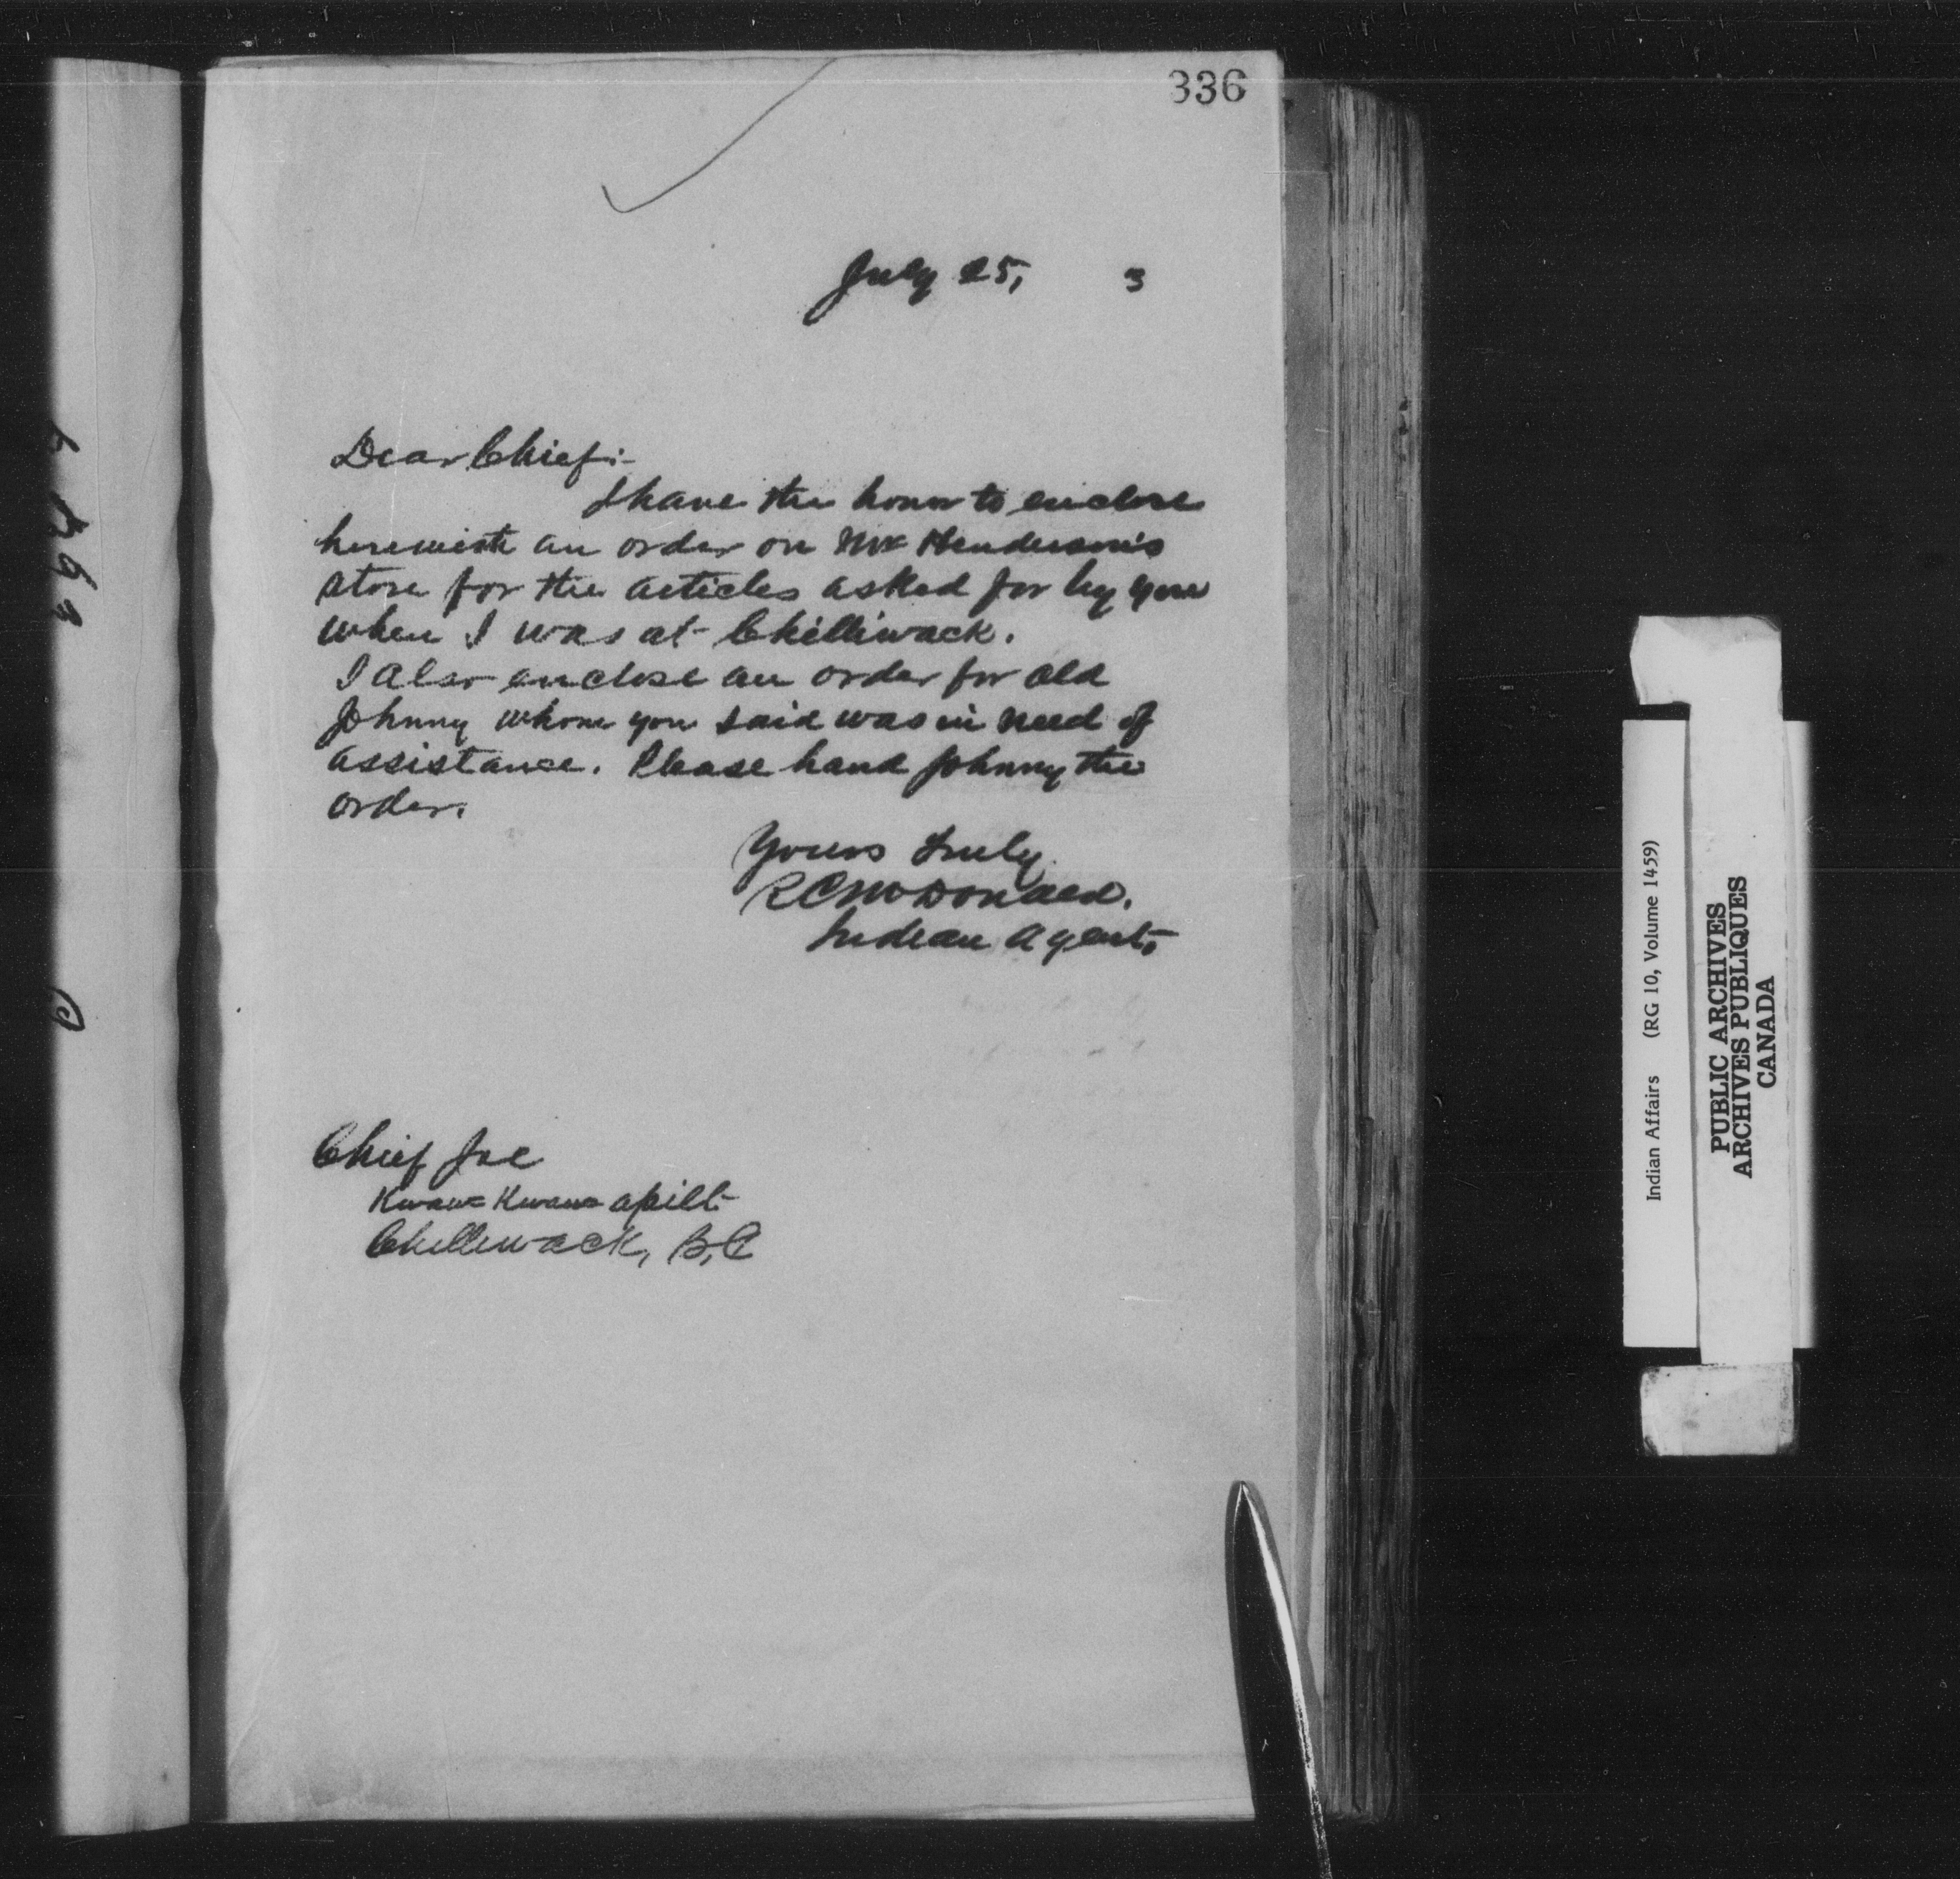 336
July 25, 3
Dear Chief:-
I have the honor to enclose
herewith an order on Mr Henderson's
store for the articles asked for by you
when I was at Chilliwack.
I also enclose an order for old
Johnny whom you said was in need of
assistance. Please hand Johnny the
order.
Yours truly
R C McDonald.
Indian Agent.
Chief Joe
Kwaw-Kwaw-apilt
Chilliwack, B.C
Indian Affairs (RG 10, Volume 1459)
PUBLIC ARCHIVES
ARCHIVES PUBLIQUES
CANADA